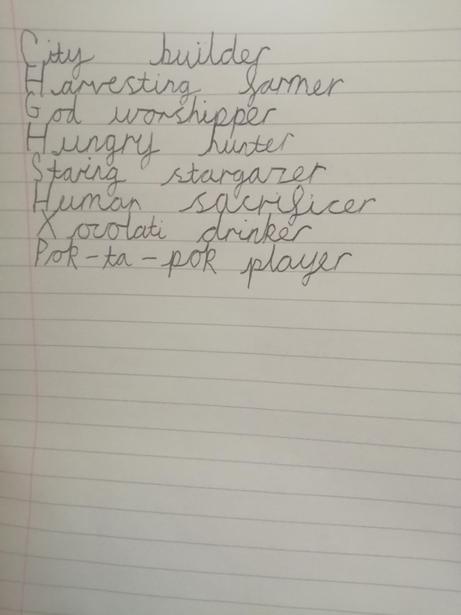 City builder
Harvesting farmer
God worshipper
Hungry hunter
Staring stargazer
Human sacrificer
Xocolati drinker
Pok-ta-pok player